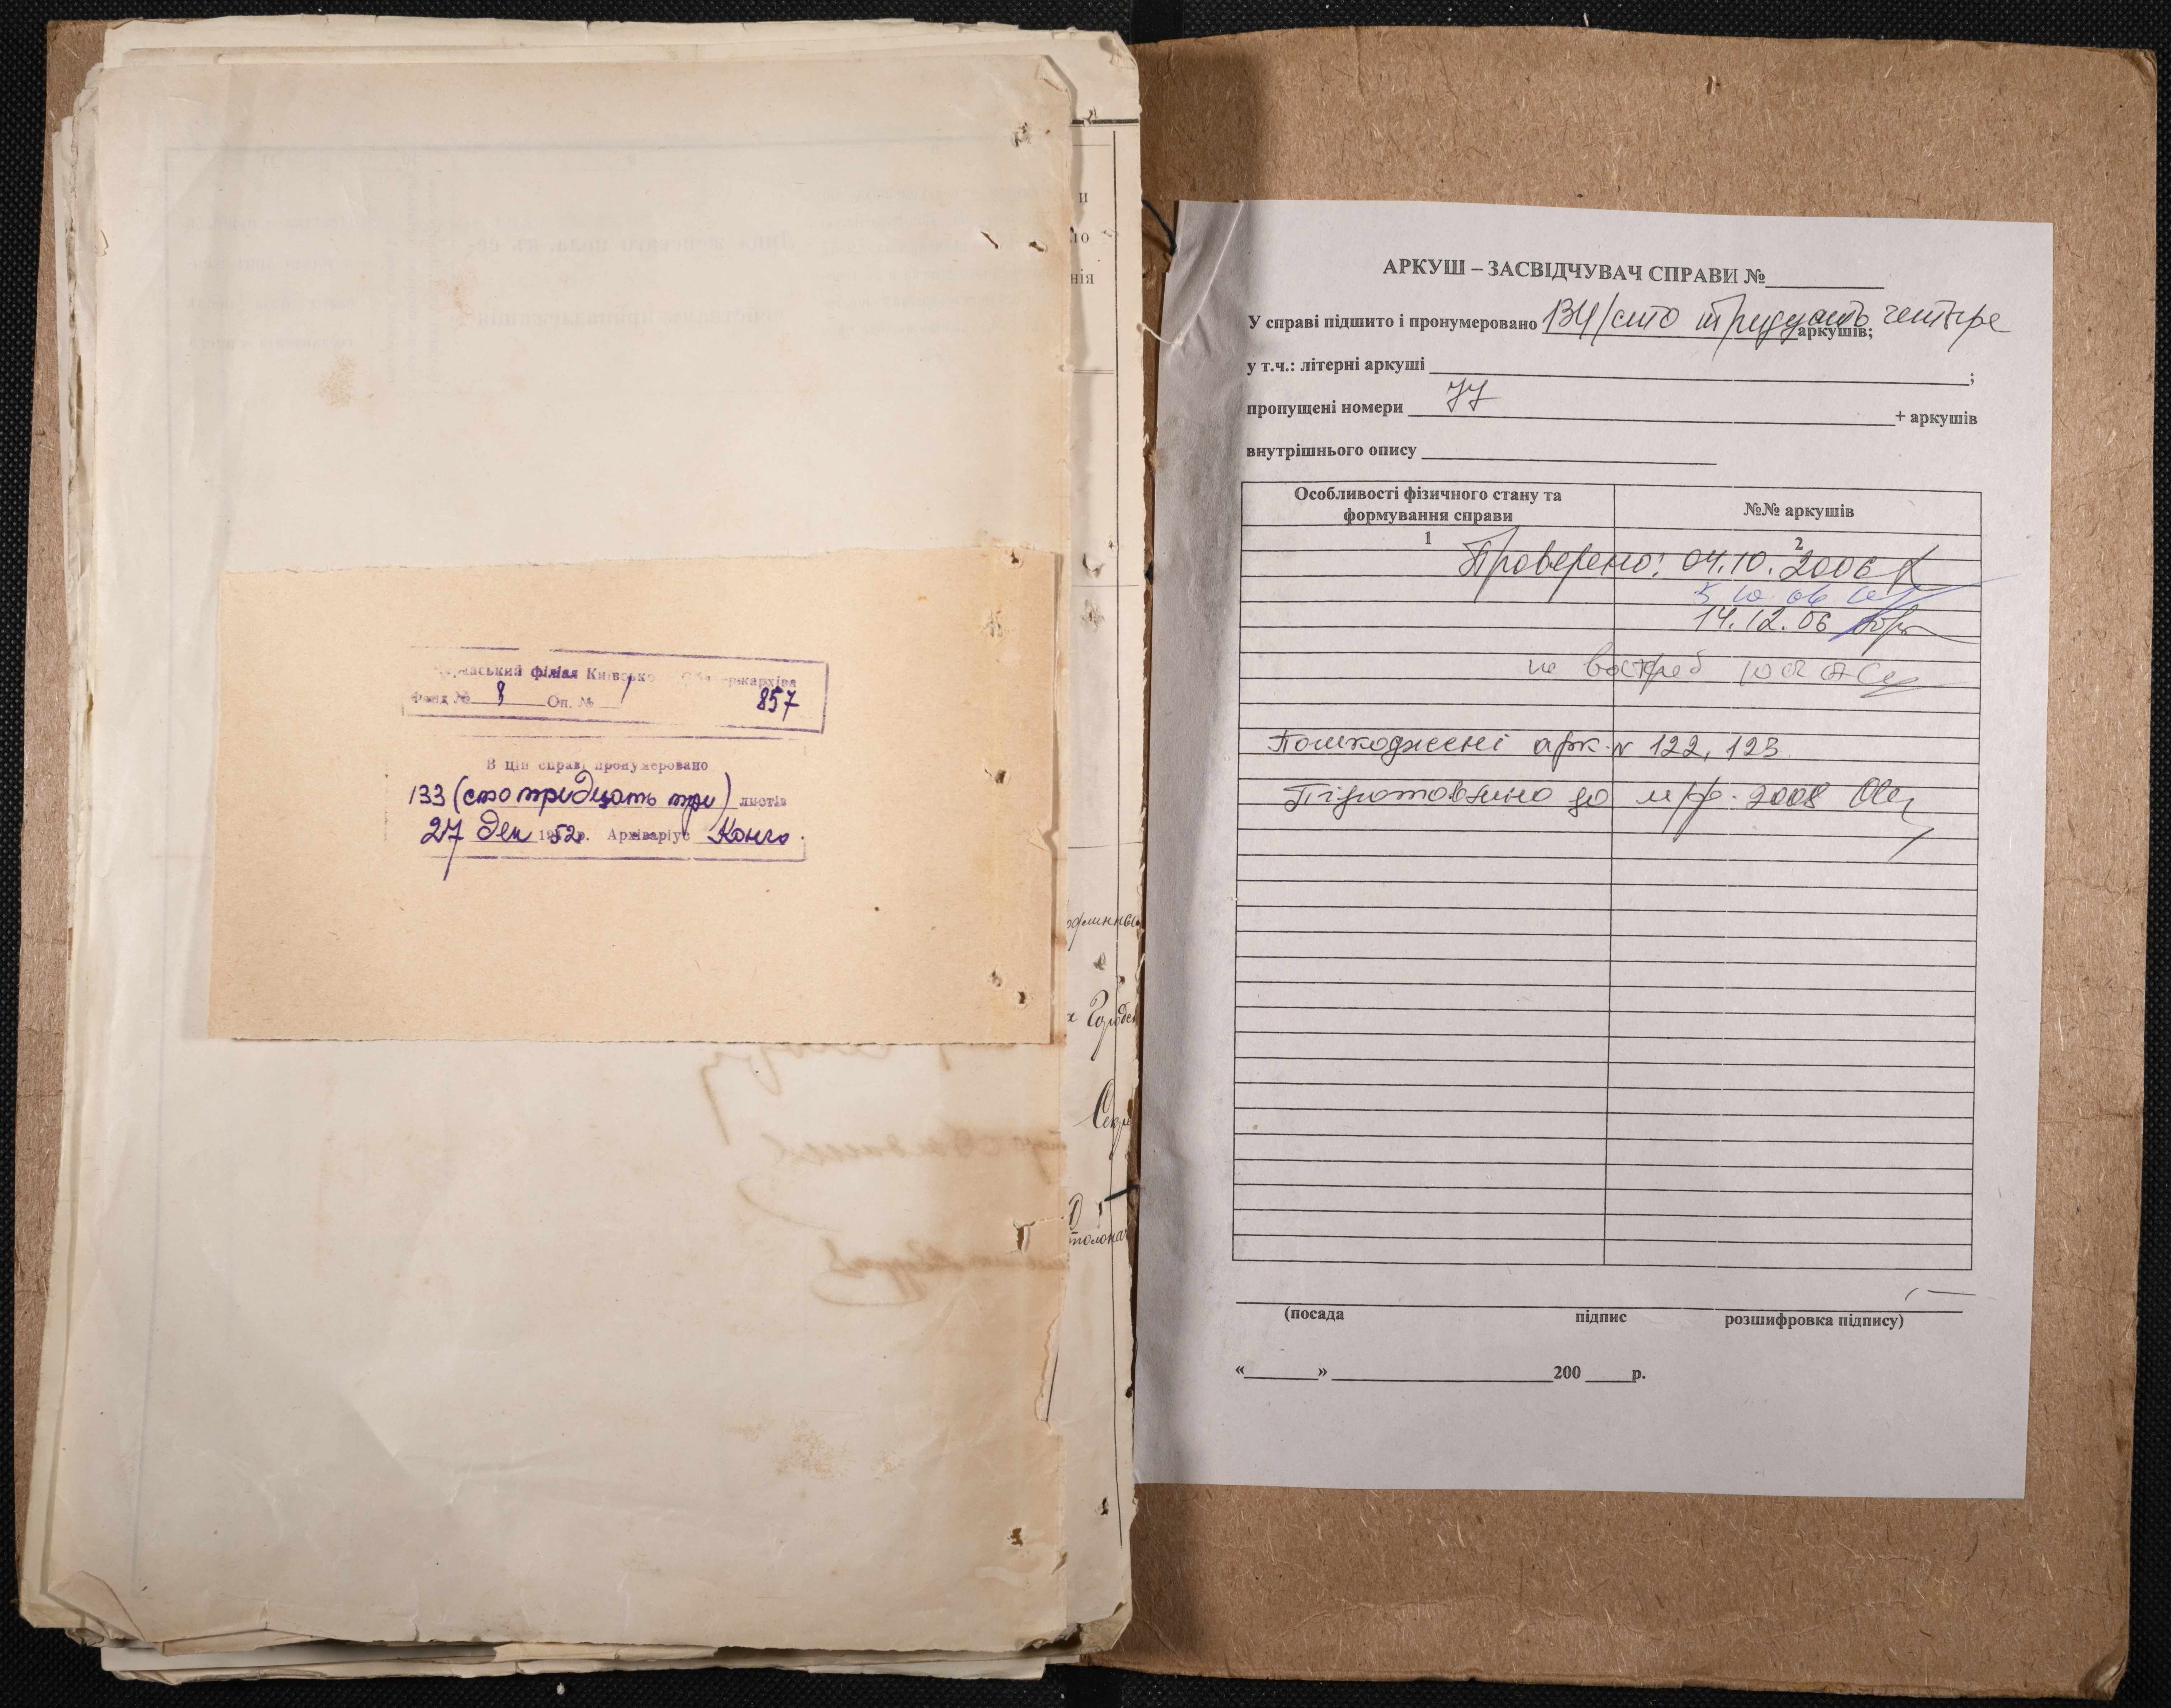 и
ло
нія
филиал Київсько
Фонд № 8 Оп. № 1 857
В цій справі пронумеровано
133 (сто тридцать три) листів
27 Дек 1952р. Архіваріус
Секре
АРКУШ – ЗАСВІДЧУВАЧ СПРАВИ №
У справі підшито і пронумеровано 134/сто тридцать четыре аркушів;
у т.ч.: літерні аркуші ;
пропущені номери 77 + аркушів
внутрішнього опису
Особливості фізичного стану та формування справи
№№ аркушів
1
2
Проверено: 04.10.2006
5 10 06
14.12.06
не востреб
Пошкоджені арк. № 122, 123.
Підготовлено до 2008
(посада підпис розшифровка підпису)
« » 200 р.